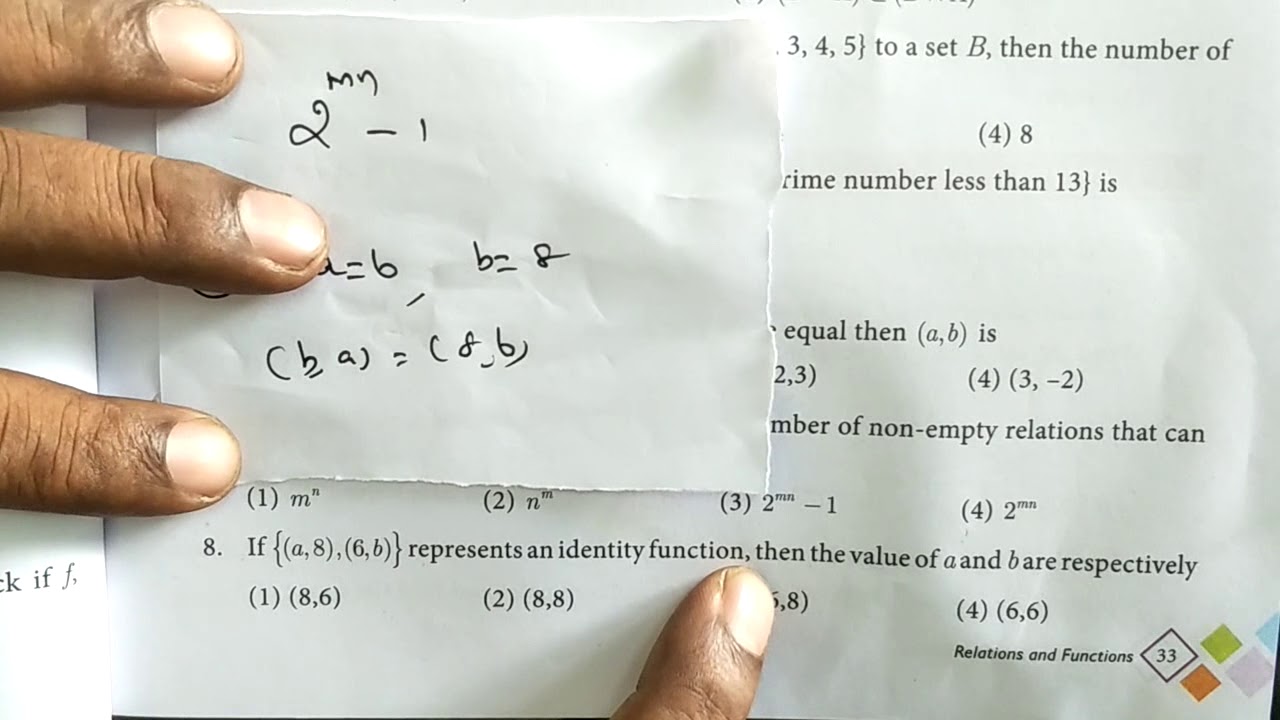 3, 4, 5} to a set B, then the number of
2^{mn} – 1
(4) 8
rime number less than 13} is
a=6, b=8
equal then (a,b) is
(b,a) = (8,6)
2,3) (4) (3, –2)
mber of non-empty relations that can
(1) mⁿ (2) nᵐ (3) 2ᵐⁿ – 1 (4) 2ᵐⁿ
8. If {(a,8),(6,b)} represents an identity function, then the value of a and b are respectively
ck if f,
(1) (8,6) (2) (8,8) ,8) (4) (6,6)
Relations and Functions 33